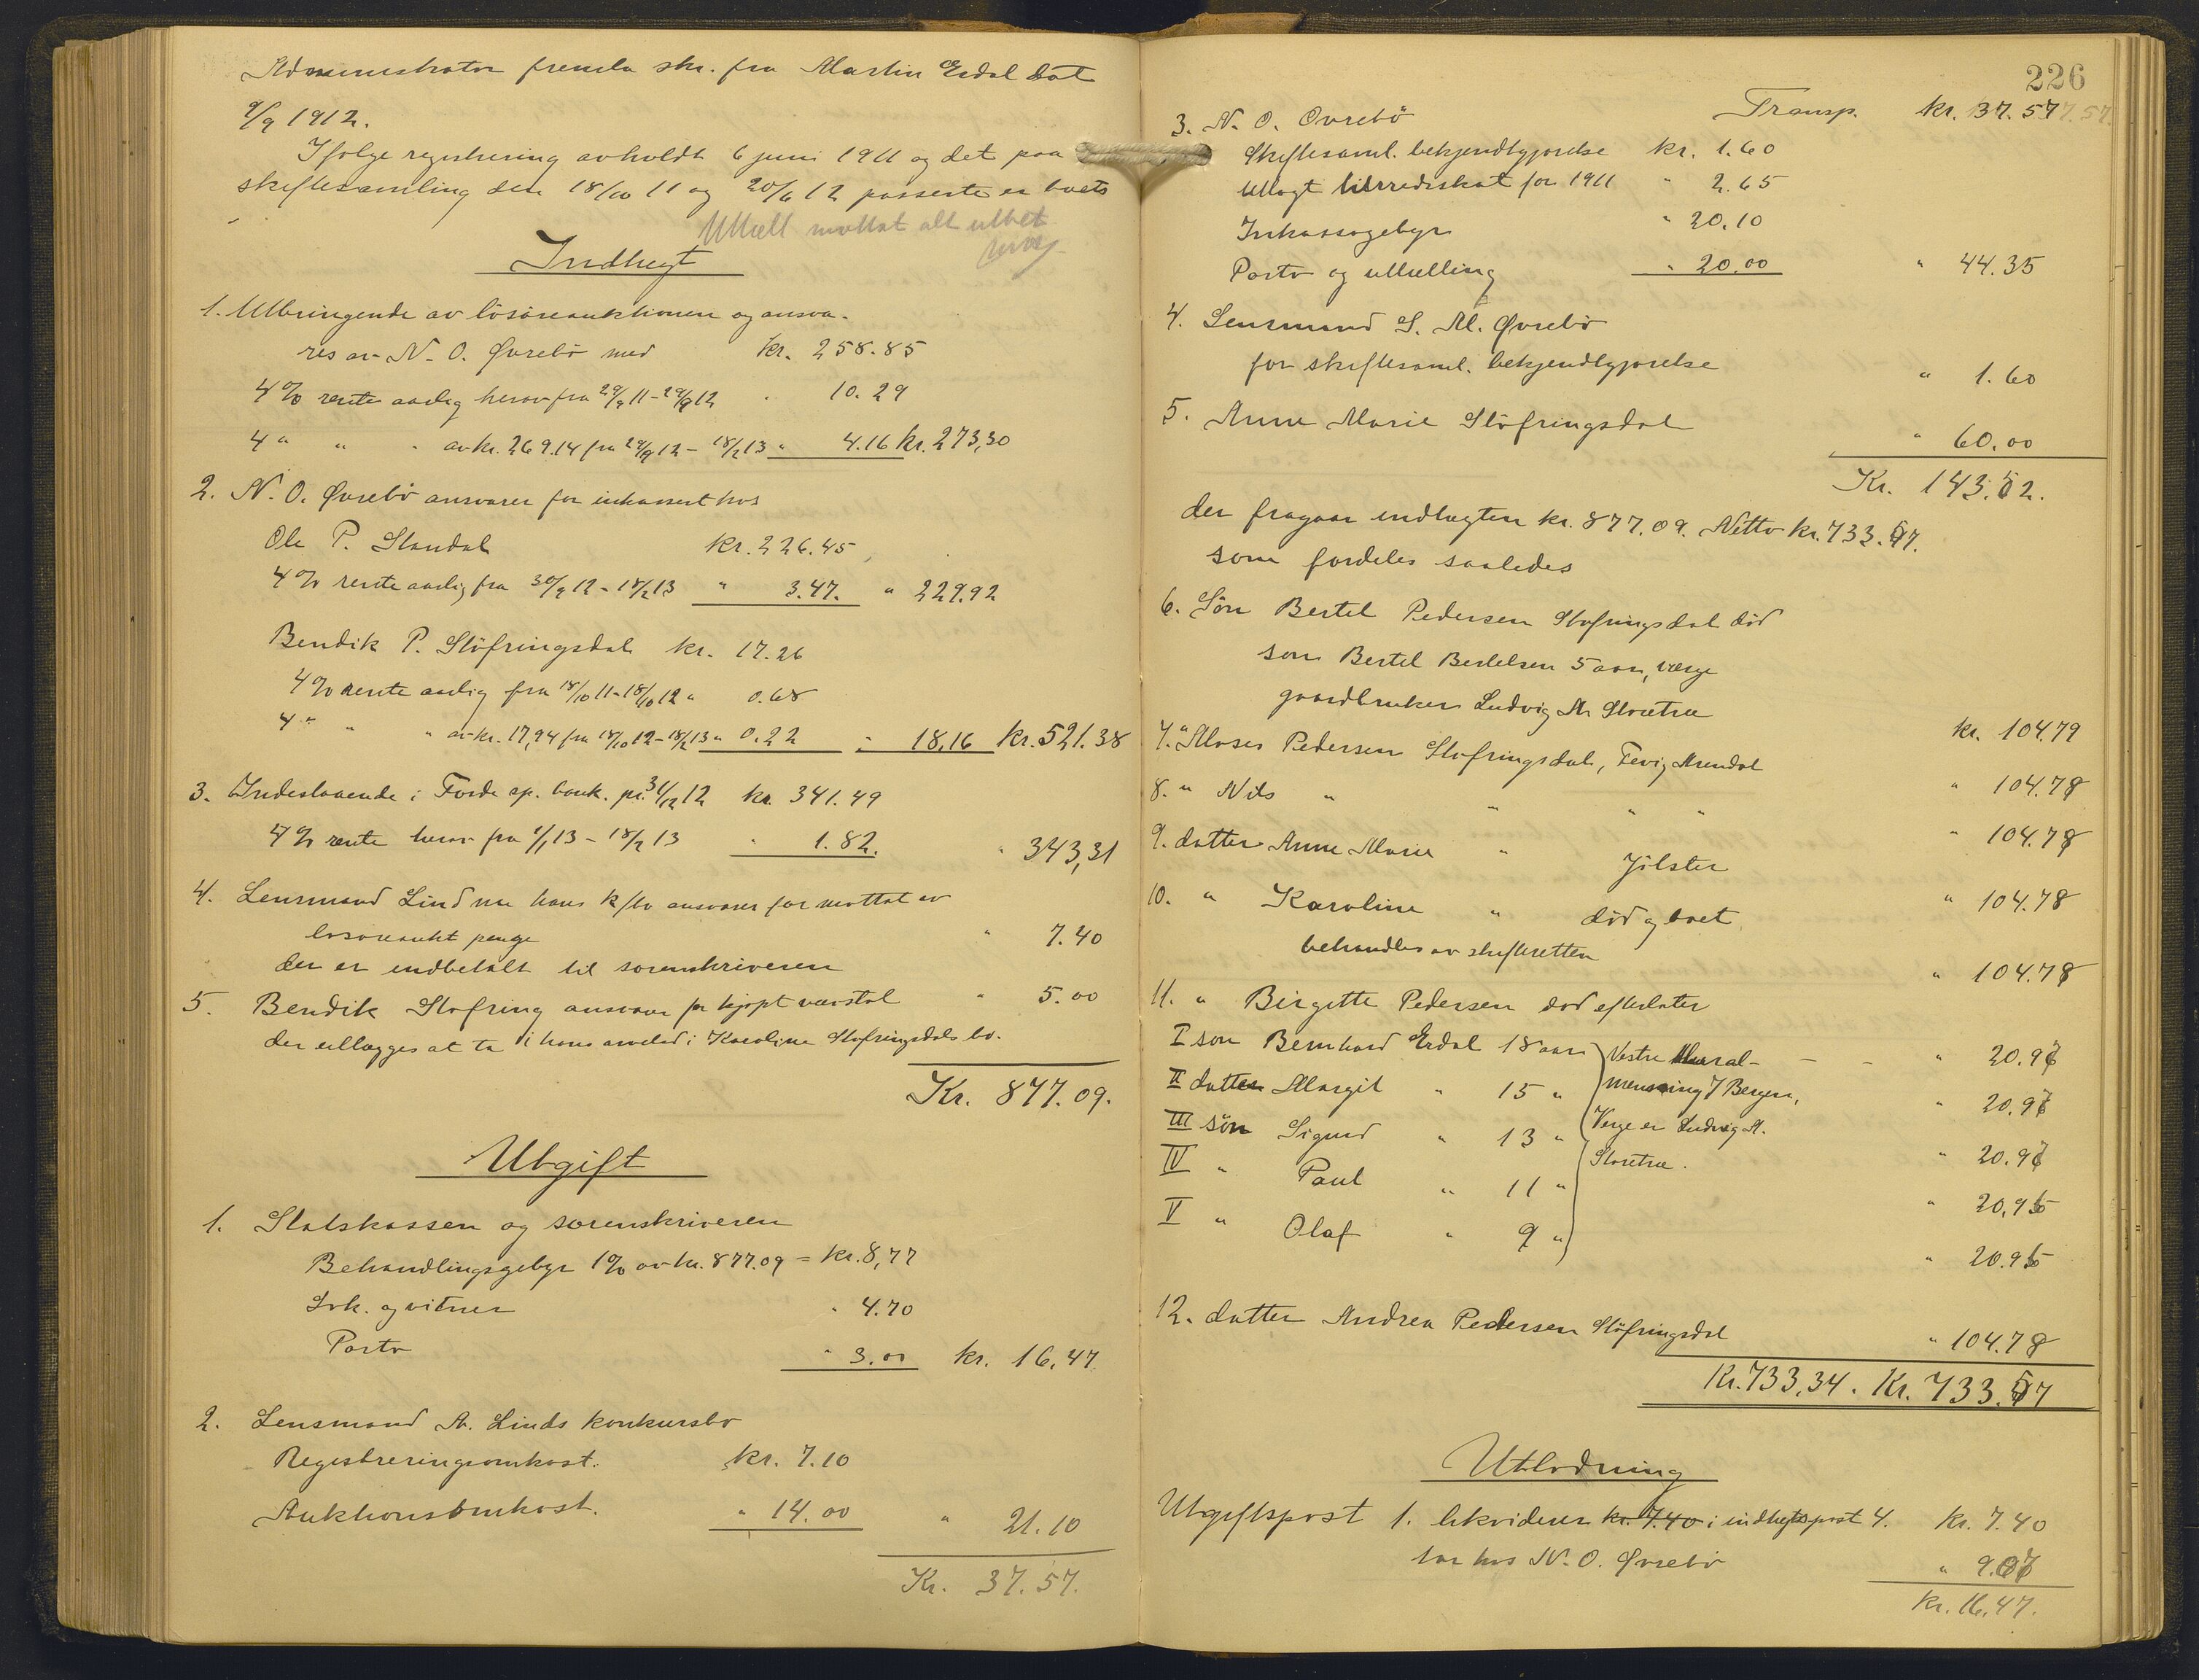 Administrator fremla skr. fra Martin Erdal dat
9/9 1912.
Ifölge registrering avholdt 6 juni 1911 og det paa
skiftesamling den 18/10 11 og 20/6 12 passerte er boets
Uttællt mottat alt utbet
Indtægt
1. Utbringende av lösöreauktionen og ansva-
res av N. O. Øvrebö med kr. 258.85
4% rente aarlig herav fra 29/9 11 - 29/9 12 " 10.29
4 " " " av kr. 269.14 fra 29/9 12 - 18/2 13 " 4.16 kr. 273,30
2. N. O. Øvrebö ansvarer for inkassert hos
Ole P. Standal kr. 226.45
4% rente aarlig fra 30/9 12 - 18/2 13 " 3.47. " 229.92
Bendik P. Stöfringsdal kr. 17.26
4% rente aarlig fra 18/10 11 - 18/10 12 " 0.68
4 " " " av kr. 17,94 fra 18/10 12 - 18/2 13 " 0.22 " 18,16 kr. 521.38
3. Indestaaende i Förde sp. bank. pr. 31/12 12 kr. 341.49
4% rente herav fra 1/1 13 - 18/2 13 " 1.82. " 343,31
4. Lensmand Lind nu hans k/bo ansvarer for mottat av
lösöreaukt penge " 7.40
der er indbetalt til sorenskriveren
5. Bendik Stofring ansvarer for kjøpt vævstol " 5.00
der utlægges at ta i hans arvelod i Karoline Stofringsdals bo.
Kr. 877.09.
Utgift
1. Statskassen og sorenskriveren
Behandlingsgebyr 1% av kr. 877.09 = kr. 8,77
Lok. og vitner " 4.70
Porto " 3.00 kr. 16,47
2. Lensmand A. Linds konkursbo
Registreringsomkost. kr. 7.10
Auktionsomkost. " 14.00 " 21.10
Kr. 37.57.
226
Transp. kr. 37.57
3. N. O. Ovrebö
Skiftesaml. bekjendtgjørelse kr. 1.60
Utlagt herredsskat for 1911 " 2.65
Inkassogebyr " 20.10
Porto og uttælling " 20.00 " 44.35
4. Lensmand S. M. Øvrebö
for skiftesaml. bekjendtgjørelse " 1.60
5. Anne Marie Stöfringsdal " 60.00
Kr. 143.52.
der fragaar indtægten kr. 877.09. Netto kr. 733.57.
som fordeles saaledes
6. Sön Bertel Pedersen Stofringsdal död
sön Bertel Bertelsen 5 aar, værge
gaardbruker Ludvig A. Storetræ kr. 104.79
7. " Moses Pedersen Stofringsdal, Fevig Arendal " 104.78
8. " Nils " " " " " 104.78
9. datter Anne Marie " Jölster " 104.78
10. " Karoline " död og boet
behandles av skifteretten " 104.78
11. " Birgitte Pedersen död efterlater
I sön Bernhard Erdal 18 aar " 20.96
II datter Margit " 15 " " 20.96
III sön Sigurd " 13 " " 20.96
IV " Paul " 11 " " 20,95
V " Olaf " 9 " " 20.95
Vestre Mural-
menning 7 Bergen,
Verge er Ludvig A.
Storetræ.
12. datter Andrea Pedersen Stöfringsdal " 104.78
Kr. 733,34. Kr. 733.57
Utlodning
Utgiftspost 1. likviderer kr. 7.40 i indtægtspost 4. kr. 7.40
tar hos N. O. Øvrebö " 9.07
kr. 16.47.